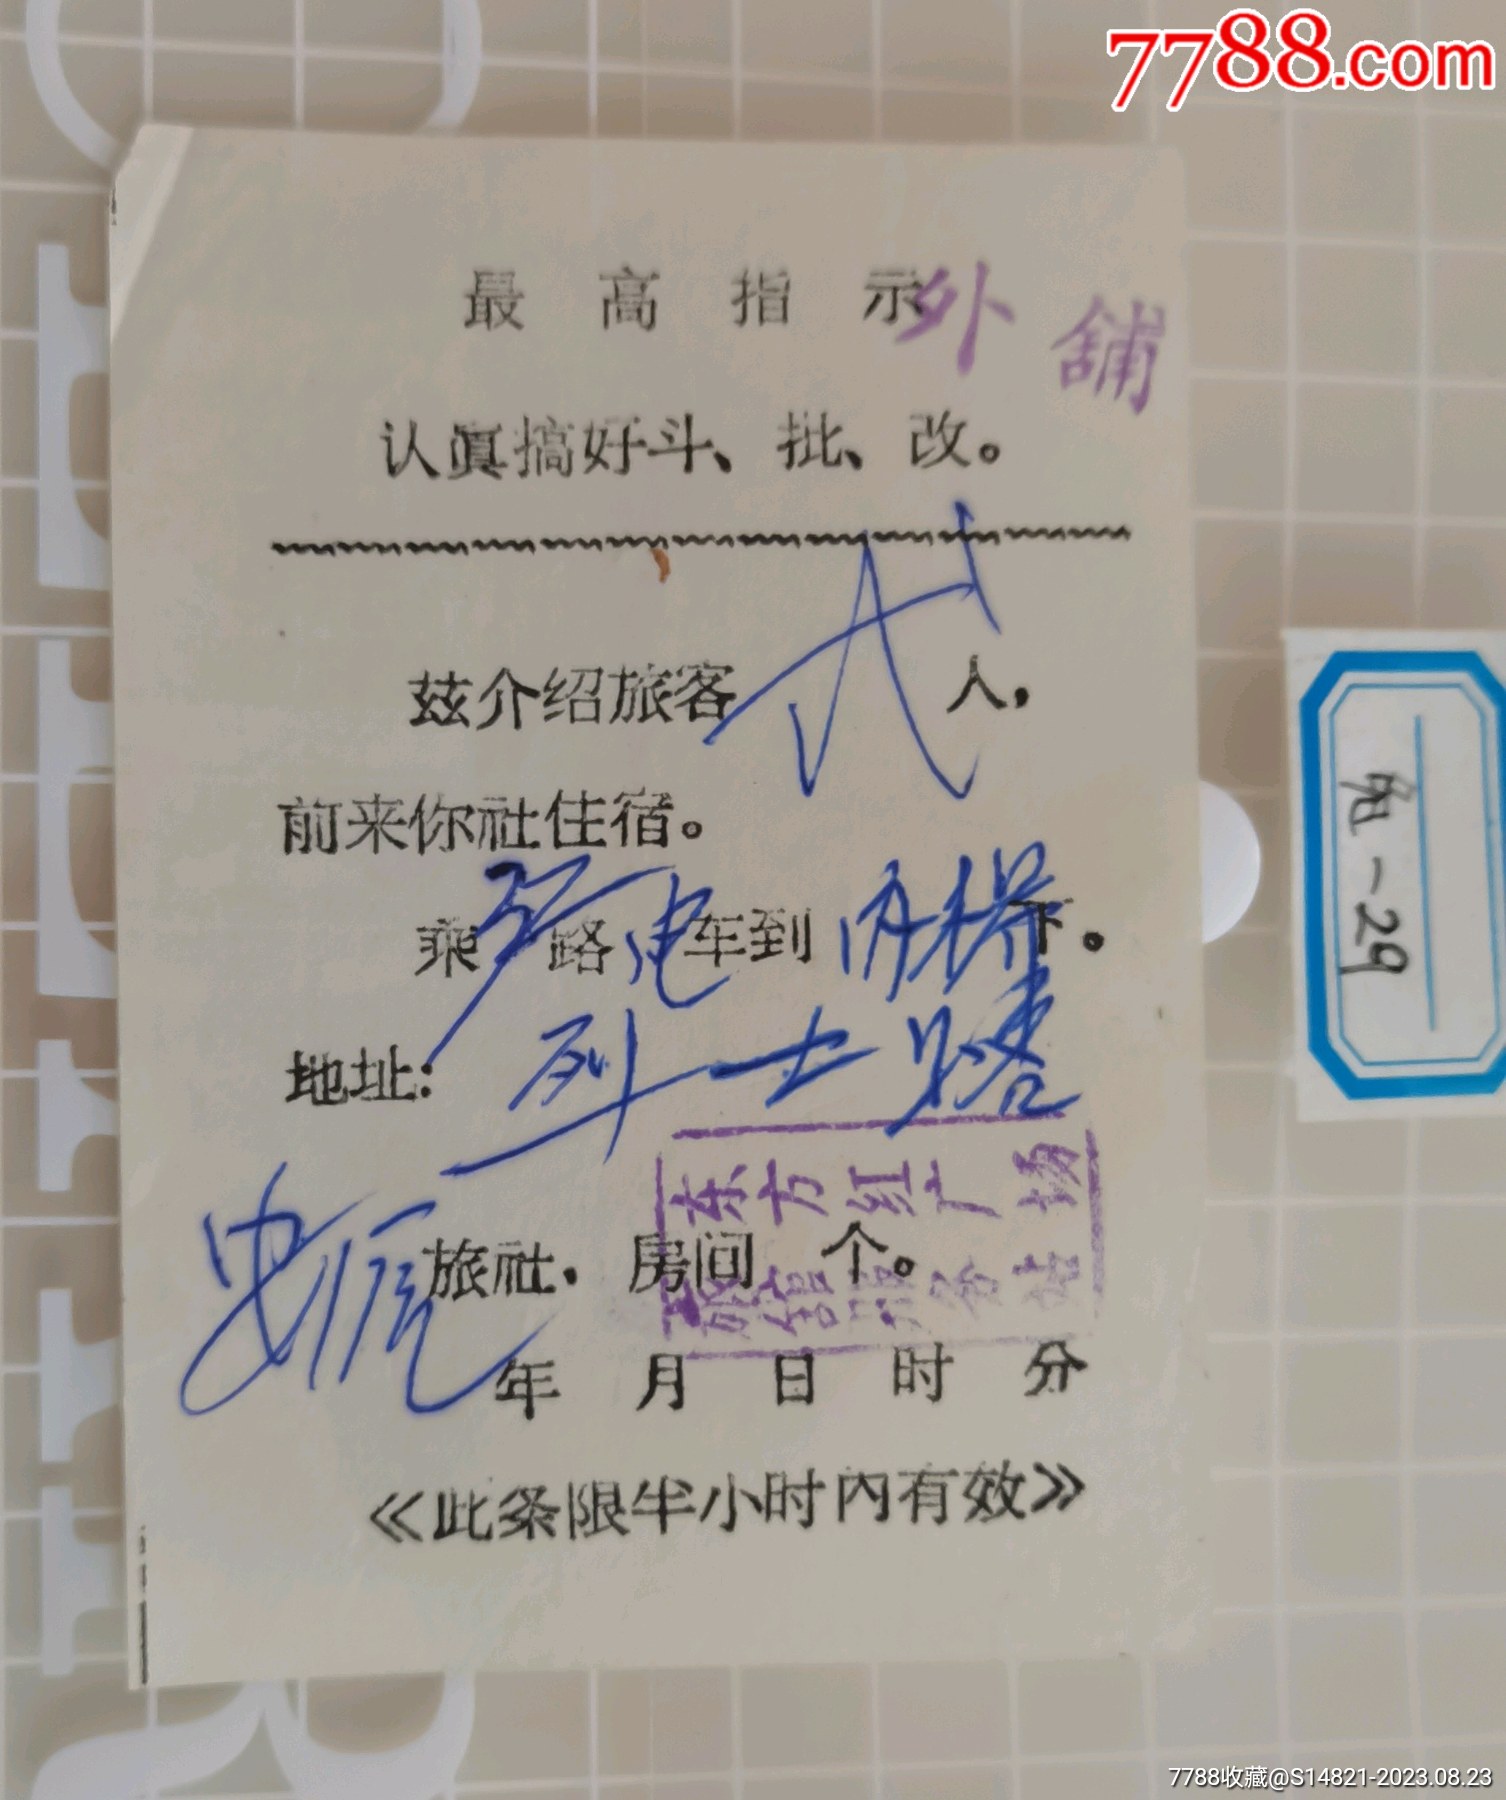 7788.com
最高指示
外舖
认眞搞好斗、批、改。
兹介绍旅客 人，
前来你社住宿。
乘 路电车到 下。
地址: 烈士路
旅社．房间 个。
东方红广场
旅馆服务站
年 月 日 时 分
《此条限半小时内有效》
-29
7788收藏@S14821-2023.08.23